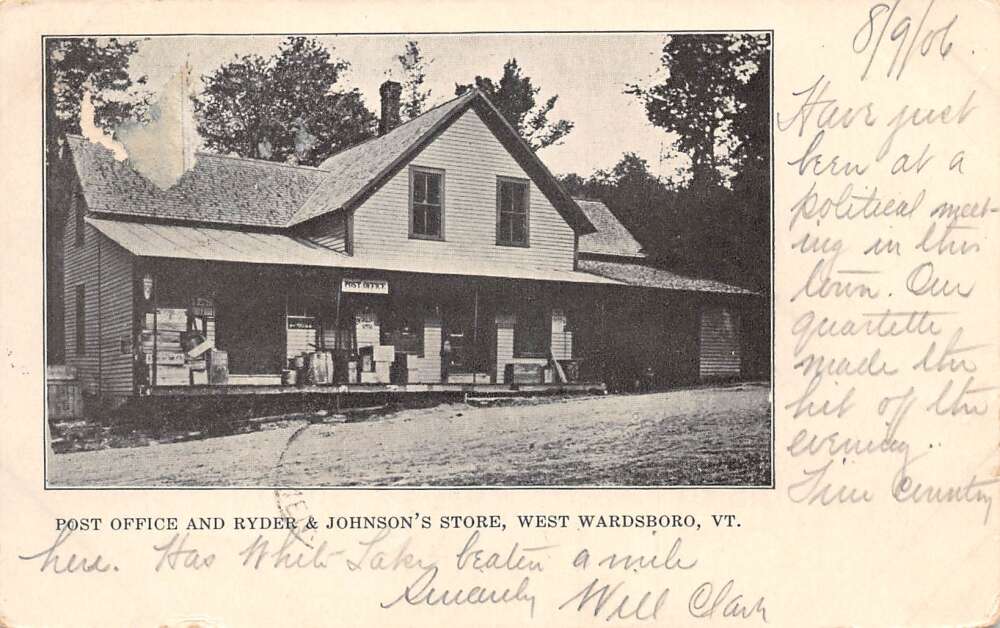 8/9/06.
Have just
been at a
political meet-
ing in this
town. Our
quartette
made the
hit of the
evening.
Fine Country
POST OFFICE
POST OFFICE AND RYDER & JOHNSON'S STORE, WEST WARDSBORO, VT.
here. Has White Lake beaten a mile
Sincerely Will Clark